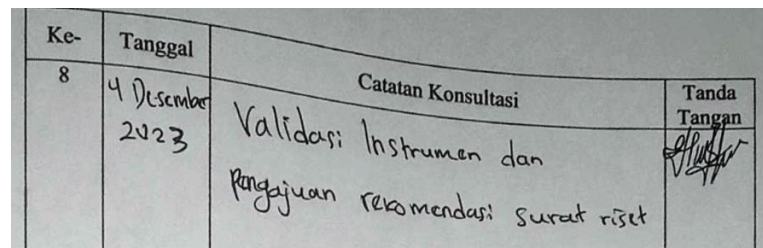 Ke- Tanggal Catatan Konsultasi Tanda
Tangan
8 4 Desember
2023
Validasi Instrumen dan
Pengajuan rekomendasi surat riset